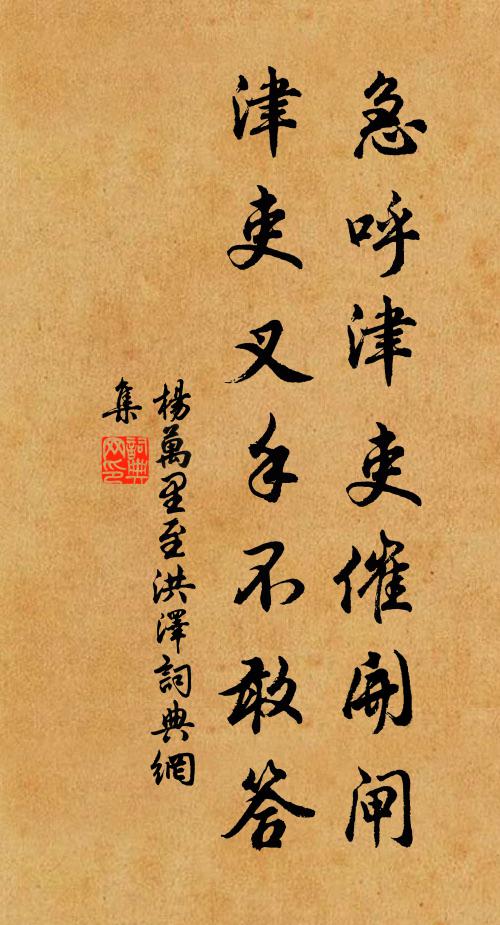 急呼津吏催開闸
津吏叉手不敢答
楊萬里至洪澤詞典網
集
詞典網印